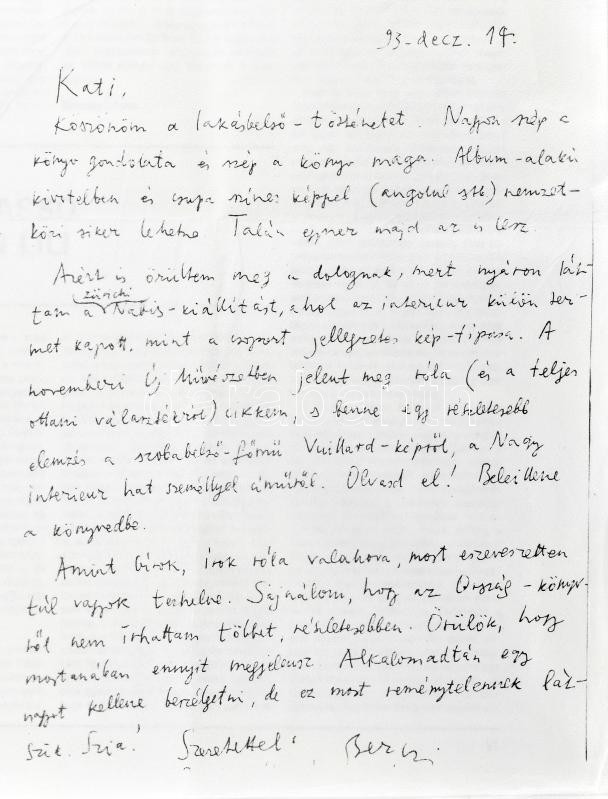 93. decz. 14.
Kati,
Köszönöm a lakásbelső-történetet. Nagyon szép a
könyv gondolata és szép a könyv maga. Album-alakú
kivitelben és csupa színes képpel (angolul stb) nemzet-
közi siker lehetne. Talán egyszer majd az is lesz.
Azért is örültem meg a dolognak, mert nyáron lát-
tam a zürichi Nabis-kiállítást, ahol az interieur külön ter-
met kapott, mint a csoport jellegzetes kép-típusa. A
novemberi Új Művészetben jelent meg róla (és a teljes
ottani választékról) cikkem, s benne egy részletesebb
elemzés a szobabelső-főmű Vuillard-képről, a Nagy
interieur hat személlyel címűről. Olvasd el! Beleillene
a könyvedbe.
Amint bírok, írok róla valahova, most eszeveszetten
túl vagyok terhelve. Sajnálom, hogy az Ország-könyv-
ről nem írhattam többet, részletesebben. Örülök, hogy
mostanában ennyit megjelensz. Alkalomadtán egy
nagyot kellene beszélgetni, de ez most reménytelennek lát-
szik. Szia! Szeretettel:
darabanth